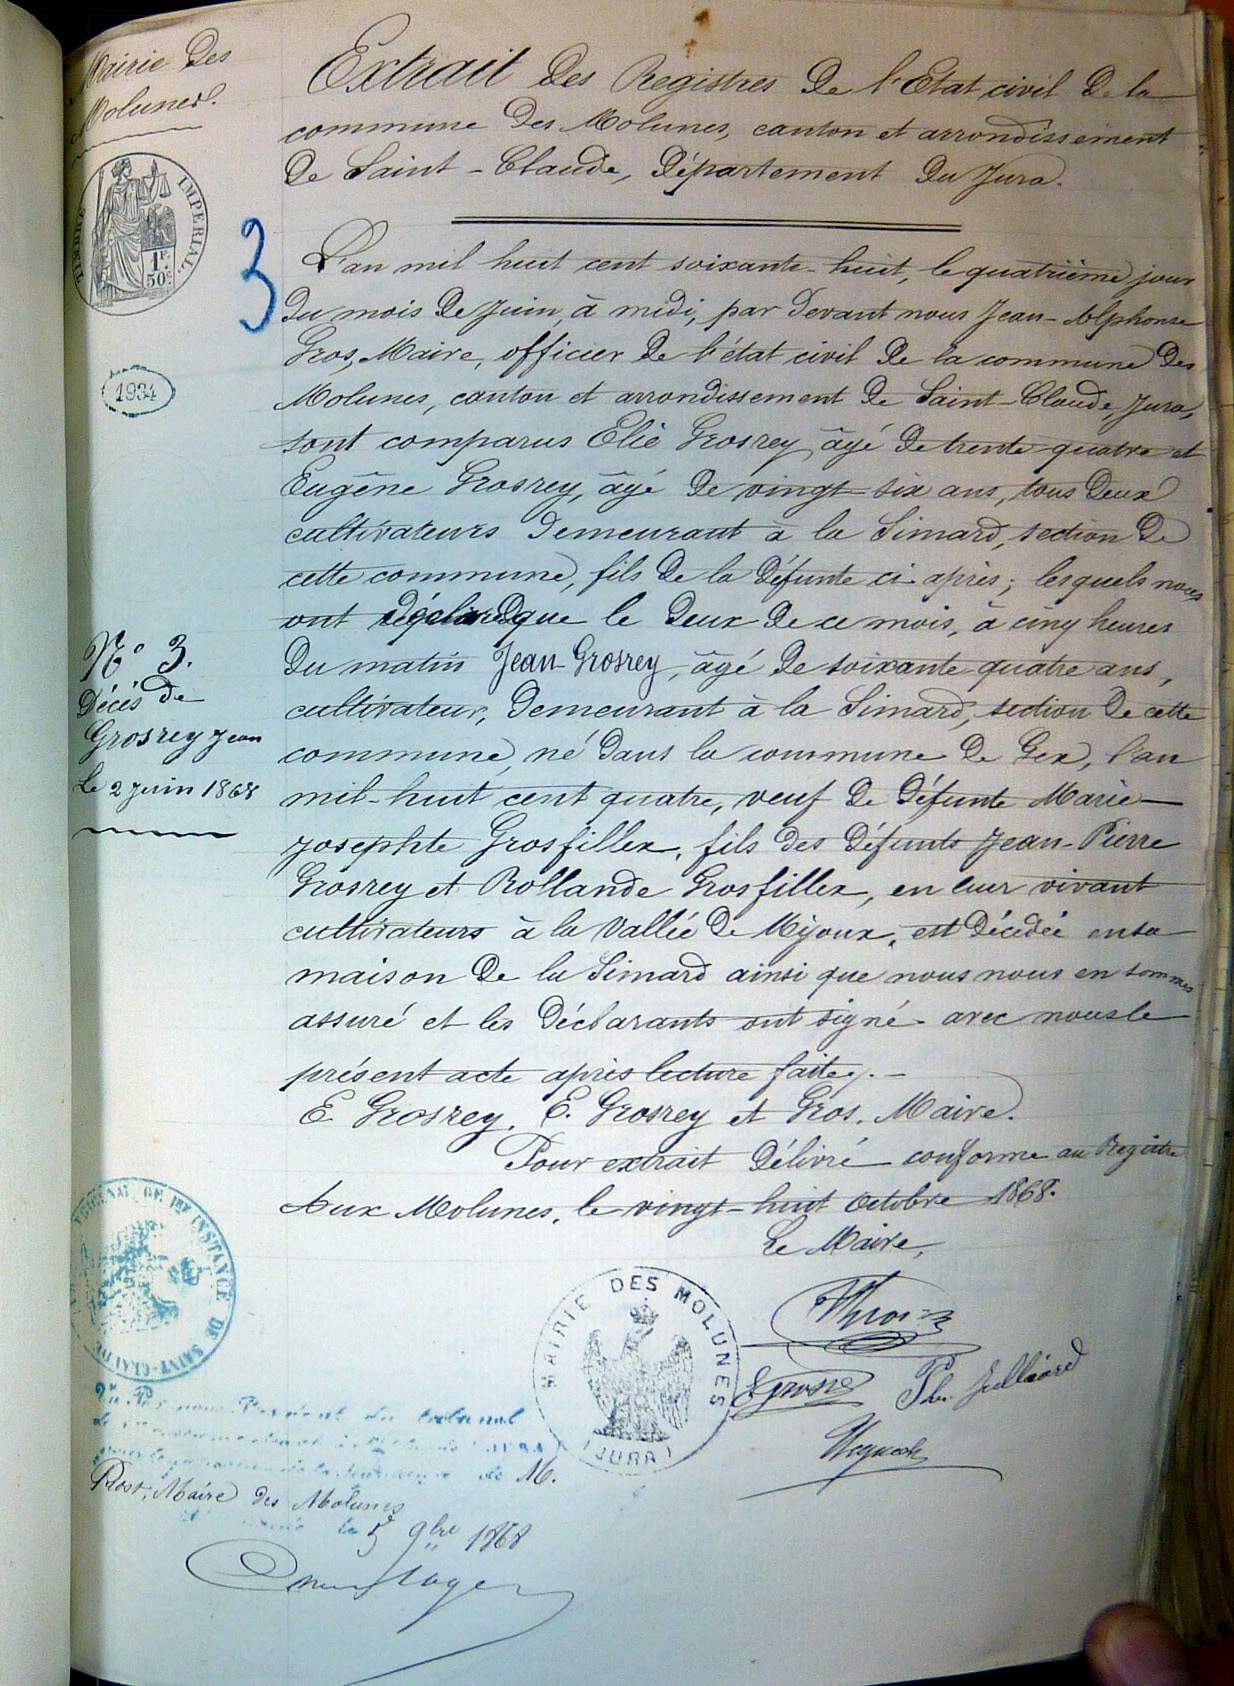 Mairie Des
Molunes.
TIMBRE IMPERIAL.
1F.
50c.
1934
3
Extrait Des Registres De l'Etat civil De la
commune Des Molunes, canton et arrondissement
De Saint-Claude, Département Du Jura.
L'an mil huit cent soixante-huit, le quatrième jour
Du mois De Juin, à midi, par Devant nous Jean-Alphonse
Gros, Maire, officier De l'état civil De la commune Des
Molunes, canton et arrondissement De Saint-Claude, Jura,
sont comparus Elie Grosrey, âgé De trente-quatre et
Eugène Grosrey, âgé De vingt-six ans, tous Deux
cultivateurs Demeurant à la Simard, section De
cette commune, fils De la Défunte ci-après; lesquels nous
ont déclaré que le Deux De ce mois, à cinq heures
Du matin Jean Grosrey, âgé De soixante-quatre ans,
cultivateur, Demeurant à la Simard, section De cette
commune, né Dans la commune De Gex, l'an
mil-huit cent quatre, veuf De Défunte Marie-
Josephte Grosfillex, fils Des Défunts Jean-Pierre
Grosrey et Rollande Grosfillex, en leur vivant
cultivateurs à la Vallée De Mijoux, est Décédée en sa
maison De la Simard ainsi que nous nous en sommes
assuré et les Déclarants ont signé avec nous le
présent acte après lecture faite.
E. Grosrey, E. Grosrey et Gros, Maire.
Pour extrait Délivré conforme au Registre
Aux Molunes, le vingt-huit Octobre 1868.
Le Maire,
N° 3.
Décès de
Grosrey Jean
Le 2 Juin 1868
TRIBUNAL DE 1re INSTANCE DE SAINT-CLAUDE
MAIRIE DES MOLUNES
(JURA)
E Grosrey
Ph. Julliard
Vu Par nous Président du tribunal
de M.
Rost, Maire des Molunes
le 5 9bre 1868